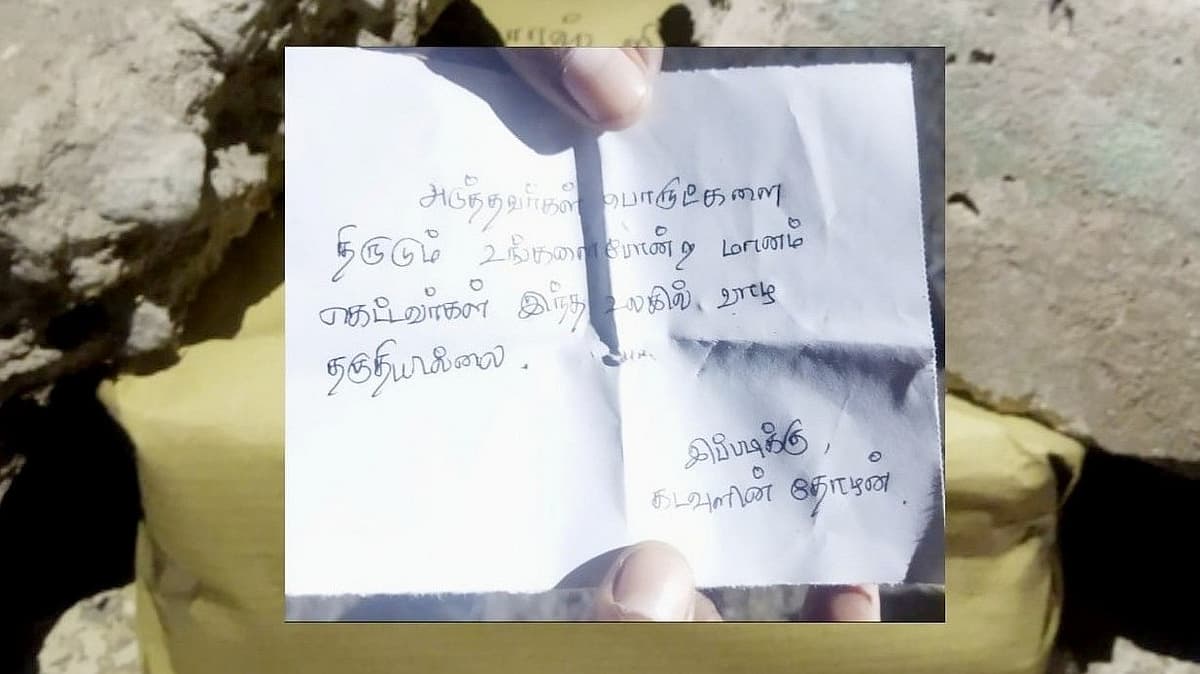 அடுத்தவர்கள் பொருட்களை
திருடும் உங்களைபோன்ற மானம்
கெட்டவர்கள் இந்த உலகில் வாழ
தகுதியில்லை.
இப்படிக்கு,
கடவுளின் தோழன்.